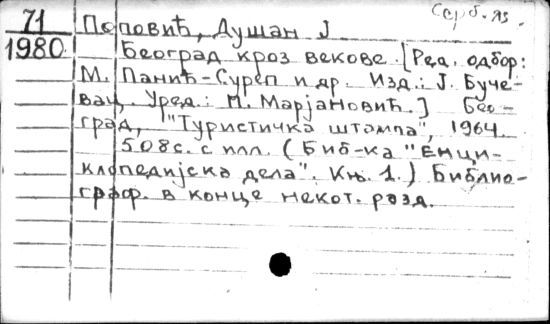 Серб. яз.
71
1980
Поповић, Душан J
Београд кроз векове. [Ред. одбор:
М. Панић-Суреп и др. Изд.: J. Буче-
вац. Уред.: М. Марjановић.] Бео-
град, "Туристичка штампа", 1964.
508 с. с илл. (Биб-ка "Енци-
клопедиjска дела". Књ. 1.) Библио-
граф. в конце некот. разд.